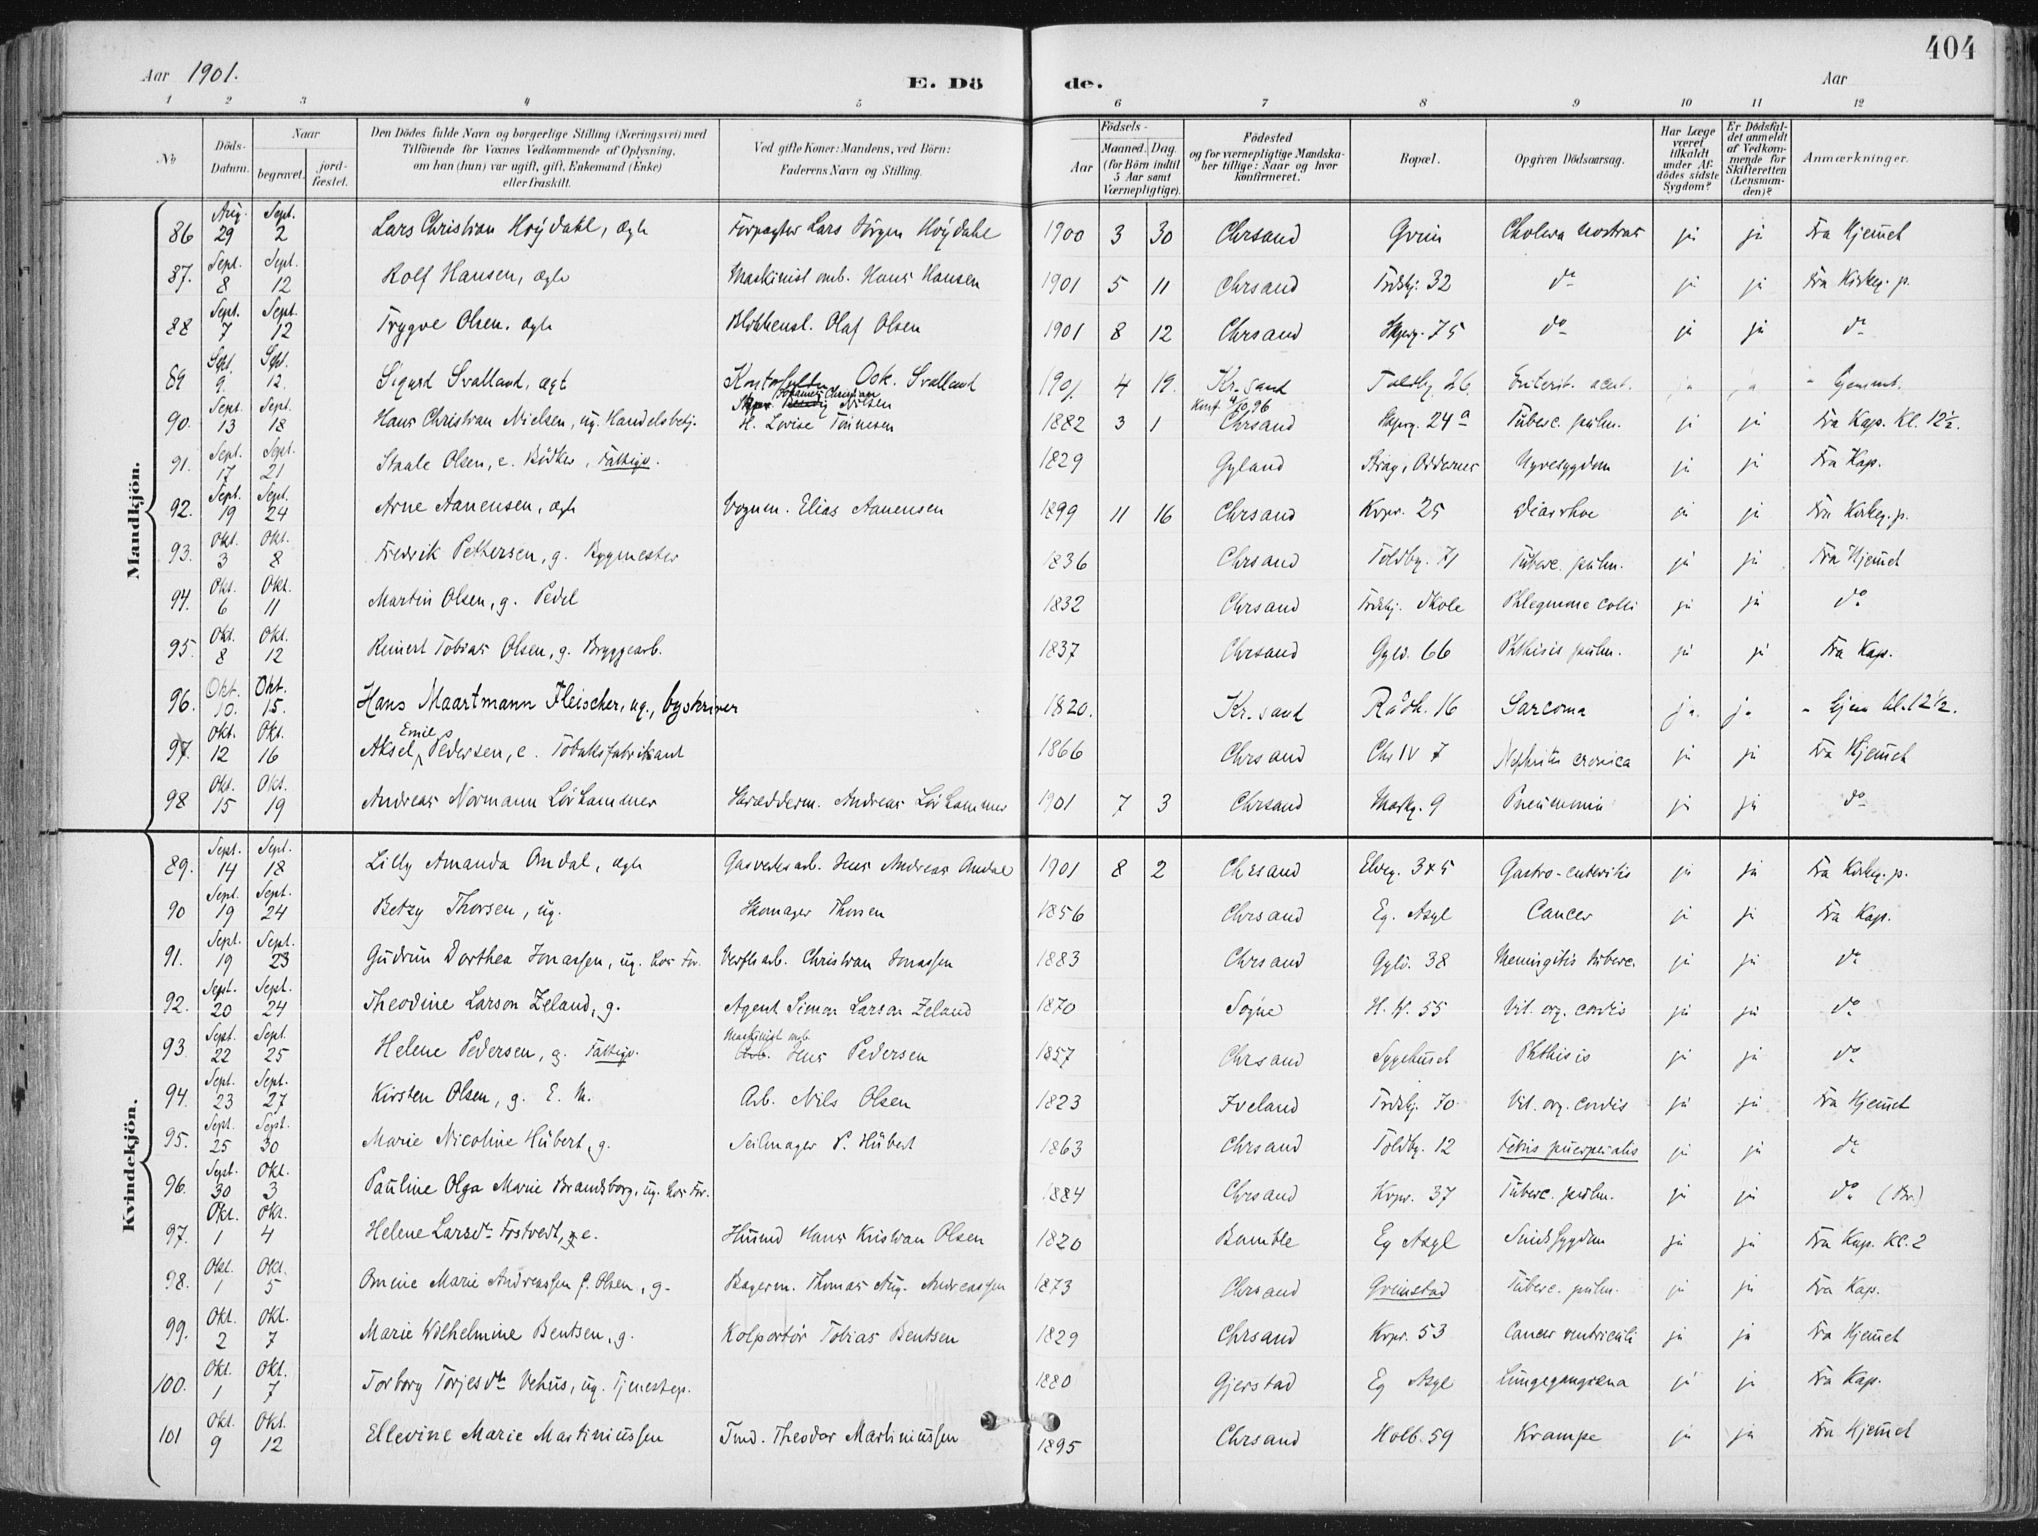 404
Aar 1901. E. Dö de. Aar
1 2 3 4 5 6 7 8 9 10 11 12
No
Döds-Datum.
Naar
begravet.
jordfæstet.
Den Dödes fulde Navn og borgerlige Stilling (Næringsvei) med
Tilföiende for Voxnes Vedkommende af Oplysning,
om han (hun) var ugift, gift, Enkemand (Enke)
eller fraskilt.
Ved gifte Koner: Mandens, ved Börn:
Faderens Navn og Stilling.
Födsels-
Aar
Maaned. Dag.
(for Börn indtil
5 Aar samt
Værnepligtige).
Födested
og for værnepligtige Mandska-
ber tillige: Naar og hvor
konfirmeret.
Bopæl.
Opgiven Dödsaarsag.
Har Læge
været
tilkaldt
under Af-
dödes sidste
Sygdom?
Er Dödsfal-
det anmeldt
af Vedkom-
mende for
Skifteretten
(Lensman-
den)?
Anmærkninger.
Mandkjön.
86 Aug. 29 Sept. 2 Lars Christian Høydahl, ægte Forpagter Lars Jørgen Høydahl 1900 3 30 Chrsand Grim Cholera nostras ja ja Fra Hjemmet
87. Sept. 8 Sept. 12 Rolf Hansen, ægte Maskinist omb. Hans Hansen 1901 5 11 Chrsand Frdskj. 32 do ja ja Fra Kirkeg. p.
88 Sept. 7 Sept. 12 Trygve Olsen, ægte Blikkensl. Olaf Olsen 1901 8 12 Chrsand Skprg. 75 do ja ja do
89 Sept. 9. Sept. 12. Sigurd Svalland, ægt Osk. Svalland 1901 4 19. Kr.sand Toldbg. 26. Enterit. acut. ja ja " Hjemmet.
90. Sept. 13 Sept. 18 Hans Christian Nielsen, ug. Handelsbetj. Johannes Christian Nilsen
H. Lovise Tønnesen 1882 3 1 Konf. 4/10 96 Chrsand Skprg. 24a Tuberc. pulm. ja ja Fra Kap. Kl. 12½.
91. Sept. 17 Sept. 21 Staale Olsen, e. Bødker, Fattigv. 1829 Gyland Strag, Oddernes Nyresygdom ja ja Fra Kap.
92. Sept. 19 Sept. 24 Arne Aanensen, ægte Vognm. Elias Aanensen 1899 11 16 Chrsand Kvpr. 25 Diarrhoe ja ja Fra Kirkeg. p.
93. Okt. 3 Okt. 8 Fredrik Pettersen, g. Bygmester 1836 Chrsand Toldbg. 71 Tuberc. pulm. ja ja Fra Hjemmet
94. Okt. 6 Okt. 11 Martin Olsen, g. Pedel 1832 Chrsand Frdskj. Skole Phlegmone colli ja ja do
95. Okt. 8 Okt. 12 Reinert Tobias Olsen, g. Bryggearb. 1837 Chrsand Gyld. 66 Phthisis pulm. ja ja Fra Kap.
96. Okt. 10. Okt. 15. Hans Maartmann Fleischer, ug., byskriver 1820. Kr.sand Rådh. 16 Sarcoma ja. ja " Hjem kl. 12½.
97. Okt. 12 Okt. 16 Aksel Emil Pedersen, e. Tobaksfabrikant 1866 Chrsand Chr IV 7 Nephritis cronica ja ja Fra Hjemmet
98 Okt. 15 Okt. 19 Andreas Normann Løvhammer Skrædderm. Andreas Løvhammer 1901 7 3 Chrsand Markg. 9 Pneumonia ja ja do
Kvindekjön.
89. Sept. 14 Sept. 18 Lilly Amanda Omdal, ægte Gasverksarb. Jens Andreas Omdal 1901 8 2 Chrsand Elveg. 3x5 Gastro-enteritis ja ja Fra Kirkeg. p.
90 Sept. 19 Sept. 24 Betzy Thorsen, ug. Skomager Thorsen 1856 Chrsand Eg. Asyl Cancer ja ja Fra Kap.
91. Sept. 19 Sept. 23 Gudrun Dorthea Jonassen, ug. hos For. Verftsarb. Christian Jonassen 1883 Chrsand Gyld. 38 Meningitis tuberc. ja ja do
92. Sept. 20 Sept. 24 Theodine Larson Zeland, g. Agent Simon Larson Zeland 1870 Søgne H. W. 55 Vit. org. cordis ja ja do
93 Sept. 22 Sept. 25 Helene Pedersen, g. Fattigv. Maskinist omb. Jens Pedersen 1857 Chrsand Sygehuset Phthisis ja ja do
94. Sept. 23 Sept. 27 Kirsten Olsen, g. E. M. Arb. Nils Olsen 1823 Iveland Frdskj. 70 Vit. org. cordis ja ja Fra Hjemmet
95. Sept. 25 Sept. 30 Marie Nicoline Hubert, g. Seilmager P. Hubert 1863 Chrsand Toldbg. 12 Febris puerperalis ja ja do
96. Sept. 30 Okt. 3 Pauline Olga Marie Brandsborg, ug. hos For. 1884 Chrsand Kvpr. 37 Tuberc. pulm. ja ja do
97. Okt. 1 Okt. 4 Helene Larsdtr Fostvedt, e. Husmd Hans Kristian Olsen 1820 Bamble Eg Asyl Sindssygdom ja ja Fra Kap. Kl. 2
98. Okt. 1 Okt. 5 Omine Marie Andreassen f. Olsen, g. Bagerm. Thomas Aug. Andreassen 1873 Chrsand Grimstad Tuberc. pulm. ja ja Fra Kap.
99. Okt. 2 Okt. 7 Marie Wilhelmine Bentsen, g. Kolportør Tobias Bentsen 1829 Chrsand Kvpr. 53 Cancer ventriculi ja ja Fra Hjemmet
100. Okt. 1 Okt. 7 Torborg Torjesdtr Vehus, ug. Tjenestep. 1880 Gjerstad Eg Asyl Lungegangræna ja ja Fra Kap.
101 Okt. 9 Okt. 12 Ellevine Marie Martiniussen Tmd. Theodor Martiniussen 1895 Chrsand Holb. 59 Krampe ja ja Fra Hjemmet